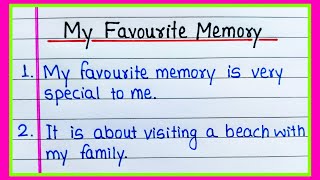 My Favourite Memory
1. My favourite memory is very
special to me.
2. It is about visiting a beach with
my family.